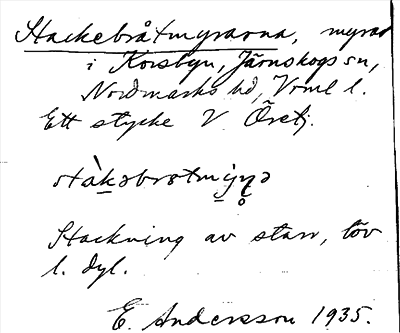 Stackebråtmyrarna, myrar
i Korsbyn, Järnskogs sn,
Nordmarks hd, Vrml l.
Ett stycke V. Öretj.
Stackning av starr, löv
l. dyl.
E. Andersson 1935.